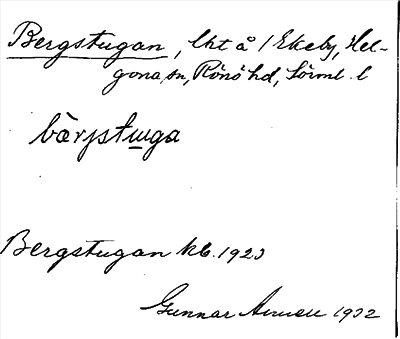 Bergstugan, lht å 1 Ekeby, Hel-
gona sn, Rönö hd, Sörml. l
bärjstuga
Bergstugan kb. 1923
Gunnar 1932